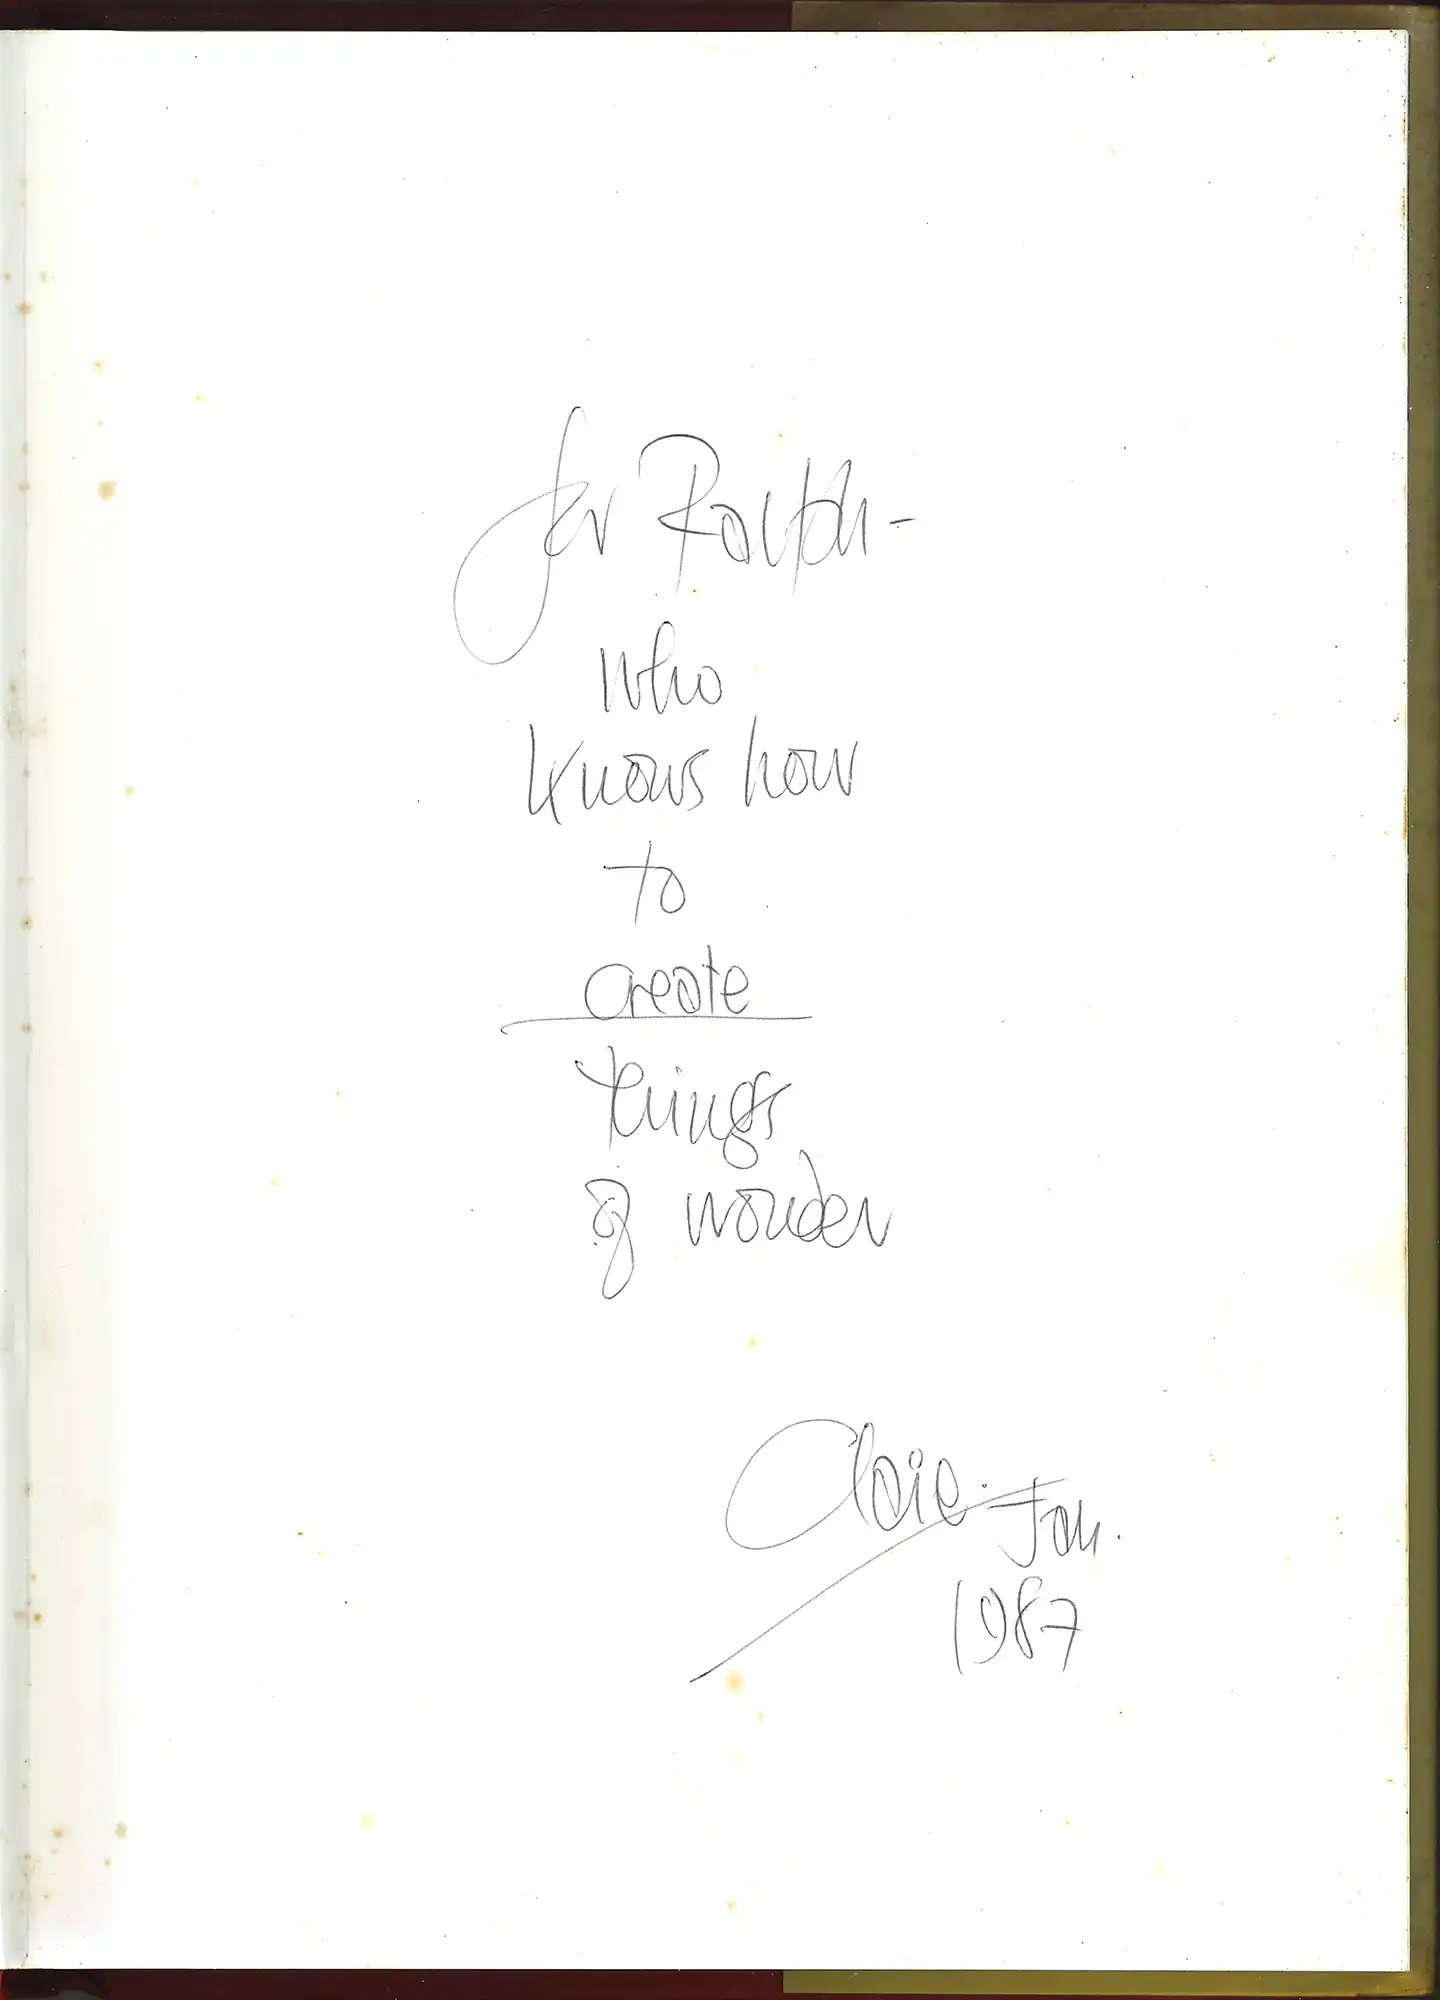 for Ralph -
who
knows how
to
create
things
of wonder
Jan.
1987